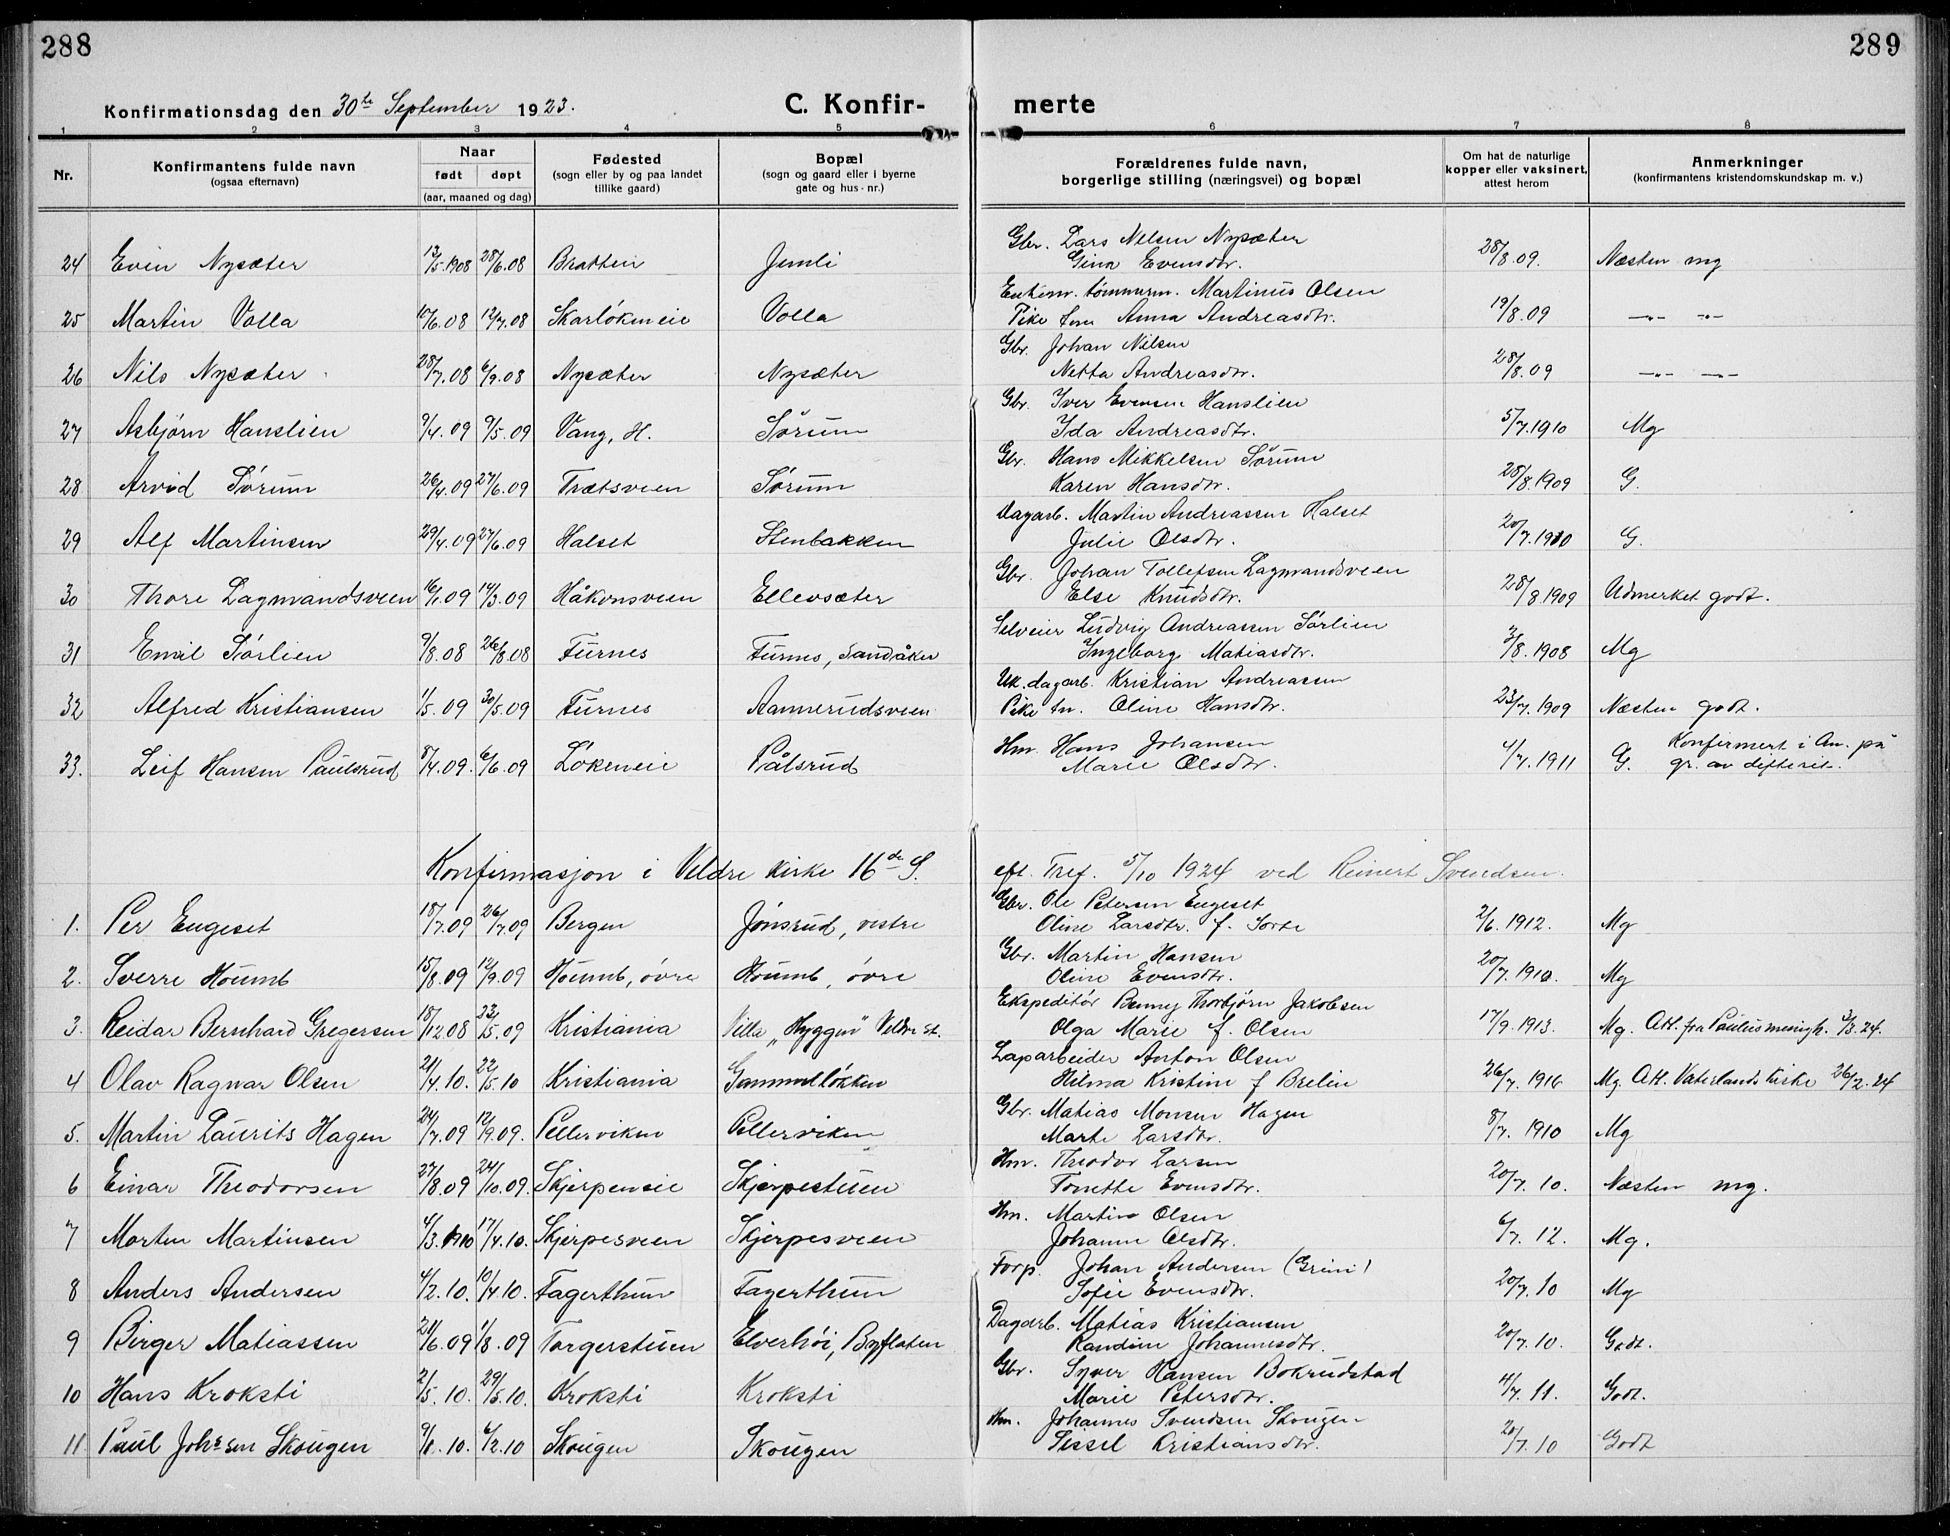 288
289
Konfirmationsdag den 30te September 1923.
C. Konfir-
merte
1 2 3 4 5 6 7 8
Nr.
Konfirmantens fulde navn
(ogsaa efternavn)
Naar
født døpt
(aar, maaned og dag)
Fødested
(sogn eller by og paa landet
tillike gaard)
Bopæl
(sogn og gaard eller i byerne
gate og hus-nr.)
Forældrenes fulde navn,
borgerlige stilling (næringsvei) og bopæl
Om hat de naturlige
kopper eller vaksinert,
attest herom
Anmerkninger
(konfirmantens kristendomskundskap m. v.)
24 Even Nysæter 13/5.1908 28/6.08 Bratten Jemli Gbr. Lars Nilsen Nysæter 28/8.09. Næsten mg
Gina Evensdtr.
25 Martin Volla 10/6.08 12/7.08 Skarlökeneie Volla Enkem. tømmerm. Martinus Olsen 19/8.09 —"— —"—
Pike fru Anna Andreasdtr.
26 Nils Nysæter 28/7.08 6/9.08 Nysæter Nysæter Gbr. Johan Nilsen 28/8.09 —"— —"—
Netta Andreasdtr.
27 Asbjørn Hanslien 9/4.09 9/5.09 Vang, H. Sørum Gbr. Iver Evensen Hanslien 5/7.1910 Mg
Ida Andreasdtr.
28 Arvid Sørum 26/4.09 27/6.09 Trætsveen Sørum Gbr. Hans Mikkelsen Sørum 28/8.1909 G.
Karen Hansdtr.
29 Alf Martinsen 29/4.09 27/6.09 Halset Stenbakken Dagarb. Martin Andreassen Halset 20/7.1910 G.
Julie Olsdtr.
30 Thore Lagmandsveen 16/1.09 14/3.09 Håkonsveen Ellevsæter Gbr. Johan Tollefsen Lagmandsveen 28/8.1909 Udmerket godt.
Else Knudsdtr.
31 Emil Sørlien 9/8.08 26/8.08 Furnes Furnes, Sandåker Selveier Ludvig Andreassen Sørlien 3/8.1908 Mg
Ingeborg Matiasdtr.
32 Alfred Kristiansen 1/5.09 30/5.09 Furnes Aannerudsveen Uk. dagarb. Kristian Andreassen 23/7.1909 Næsten godt.
Pike fru. Oline Hansdtr.
33. Leif Hansen Paulsrud 8/4.09. 6/6.09 Lökeneie Pålsrud Hm. Hans Johansen 4/7.1911 G. Konfirmert i An. på
Marie Olsdtr. gr. av difterit.
Konfirmasjon i Veldre kirke 16de S. eft. Tref. 5/10 1924 ved Reinert Svendsen.
1. Per Engeset 18/7.09 26/7.09 Bergen Jønsrud, vestre Gbr. Ole Petersen Engeset 2/6.1912. Mg
Oline Larsdtr. f. Sorte
2. Sverre Houmb 15/8.09 12/9.09 Houmb, övre Houmb, övre Gbr. Martin Hansen 20/7.1910. Mg
Oline Evensdtr.
3. Reidar Bernhard Gregersen 18/12.08 23/5.09 Kristiania Villa „Hyggen" Veldre st. Ekspeditör Benny Thorbjørn Jakobsen 17/9.1913. Mg. Att. fra Paulus menigh. 3/3.24.
Olga Marie f. Olsen
4 Olav Ragnar Olsen 21/4.10. 22/5.10 Kristiania Gammelløkken Laparbeider Anton Olsen 26/7.1916 Mg. Att. Vaterlands kirke 26/2.24
Hilma Kristine f Brelin
5. Martin Laurits Hagen 24/7.09 12/9.09. Pellerviken Pellerviken Gbr. Matias Monsen Hagen 8/7.1910 Mg
Marte Larsdtr.
6 Einar Theodorsen 27/8.09 24/10.09. Skjerpeneie Skjerpestuen Hm. Theodor Larsen 20/7.10. Næsten mg.
Tonette Evensdtr.
7 Morten Martinsen 4/3.1910 17/4.10. Skjerpesveen Skjerpesveen Hm. Martin Olsen 6/7.12. Mg.
Johanne Olsdtr.
8 Anders Andersen 4/2.10. 10/4.10. Fagerthun Fagerthun Forp. Johan Andersen (Grini) 20/7.10 Mg
Sofie Evensdtr.
9 Birger Matiassen 21/6.09 1/8.09 Torgerstuen Elverhöi, Byflaten Dagarb. Matias Kristiansen 20/7.10. Godt.
Randine Johannesdtr.
10 Hans Kroksti 2/5.10. 29/5.10. Kroksti Kroksti Gbr. Syver Hansen Bokrudstad 4/7.11. Godt.
Marie Petersdtr.
11 Paul Johssen Skougen 9/1.10. 6/2.10 Skougen Skougen Hm. Johannes Svendsen Skougen 20/7.10 Godt
Sissel Kristiansdtr.